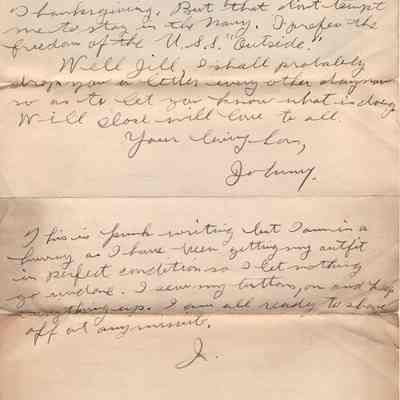 Thanksgiving. But that don't tempt
me to stay in the Navy. I prefer the
freedom of the U.S.S. "Outside."
Well Jill, I shall probably
drop you a letter every other day now
so as to let you know what is doing
Will close with love to all.
Your loving Son,
Johnny.
This is punk writing but I am in a
hurry as I have been getting my outfit
in perfect condition so I let nothing
go undone. I sew my buttons, on and keep
everything up. I am all ready to shove
off at any minute.
J.